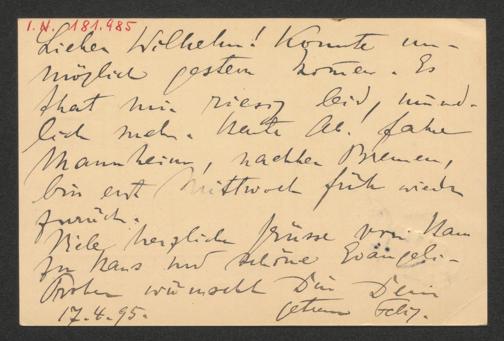 I.N. 181.985
Lieber Wilhelm! Konnte un-
möglich gestern kommen. Es
that mir riesig leid, münd-
lich mehr. Heute Ab. fahre
Mannheim, nachher Bremen,
bin erst Mittwoch früh wieder
zurück.
Viele herzliche Grüsse von Haus
zu Haus und schöne Evangeli-
Proben wünscht Dir Dein
17.4.95. getreuer Felix.